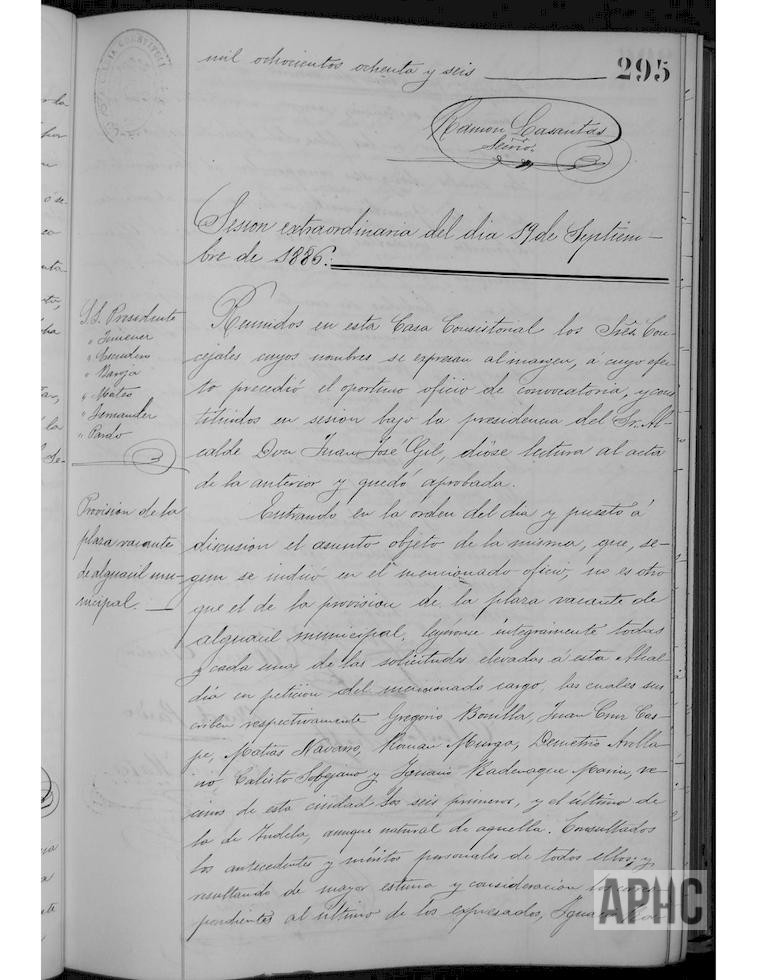 mil ochocientos ochenta y seis
295
Ramon Lasantas
Srio.
Sesion extraordinaria del dia 19 de Septiem-
bre de 1886.
S.S. Presidente
" Jimenez
" Escudero
" Barga
" Mateo
" Fernandez
" Pardo
Reunidos en esta Casa Consistorial los Sres. Con-
cejales cuyos nombres se expresan al margen, á cuyo efec-
to precedió el oportuno oficio de convocatoria, y cons
tituidos en sesion bajo la presidencia del Sr. Al-
calde Don Juan José Gil, dióse lectura al acta
de la anterior y quedó aprobada.
Provision de la
plaza vacante
de alguacil mu-
nicipal.
Entrando en la orden del dia y puesto á
discusion el asunto objeto de la misma, que, se-
gun se indicó en el mencionado oficio, no es otro
que el de la provision de la plaza vacante de
alguacil municipal, leyéronse integramente todas
y cada una de las solicitudes elevadas á esta Alcal
día en peticion del mencionado cargo, las cuales sus
criben respectivamente Gregorio Bonilla, Juan Cruz Cas-
pe, Matias Navarro, Roman Munga, Demetrio Arella-
no, Calisto Sobejano y Ignacio Marin, ve
cinos de esta ciudad los seis primeros, y el último de
la de Tudela, aunque natural de aquella. Consultados
los antecedentes y méritos personales de todos ellos, y
resultando de mayor estima y consideracion los corres
pondientes al último de los expresados, Ignacio
APHC